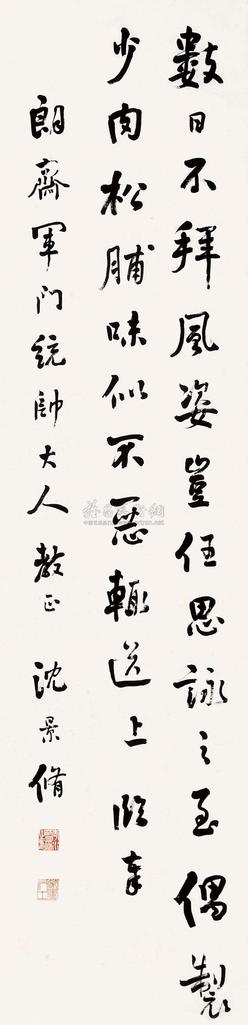 數日不拜風姿豈任思詠之至偶製
少肉松脯味似不惡輒送上順奉
朗齋軍門統帥大人教正 沈景脩